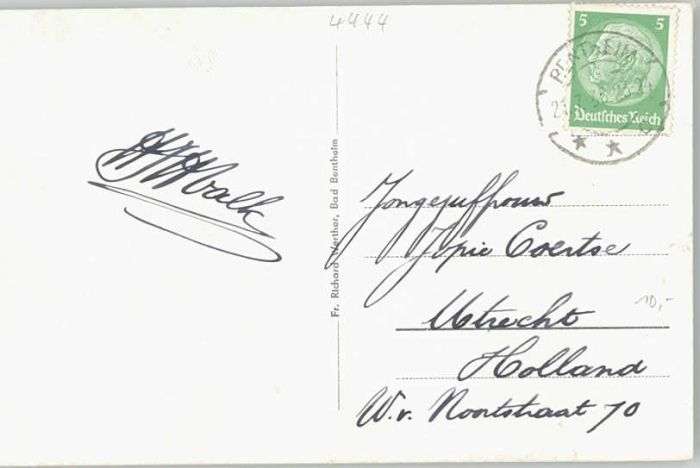 4444
5 5
Deutsches Reich
BENTHEIM
Fr. Richard Werther, Bad Bentheim
Jongejuffrouw
Jopie Coertse
10,-
Utrecht
Holland
W.v. Noortstraat 70